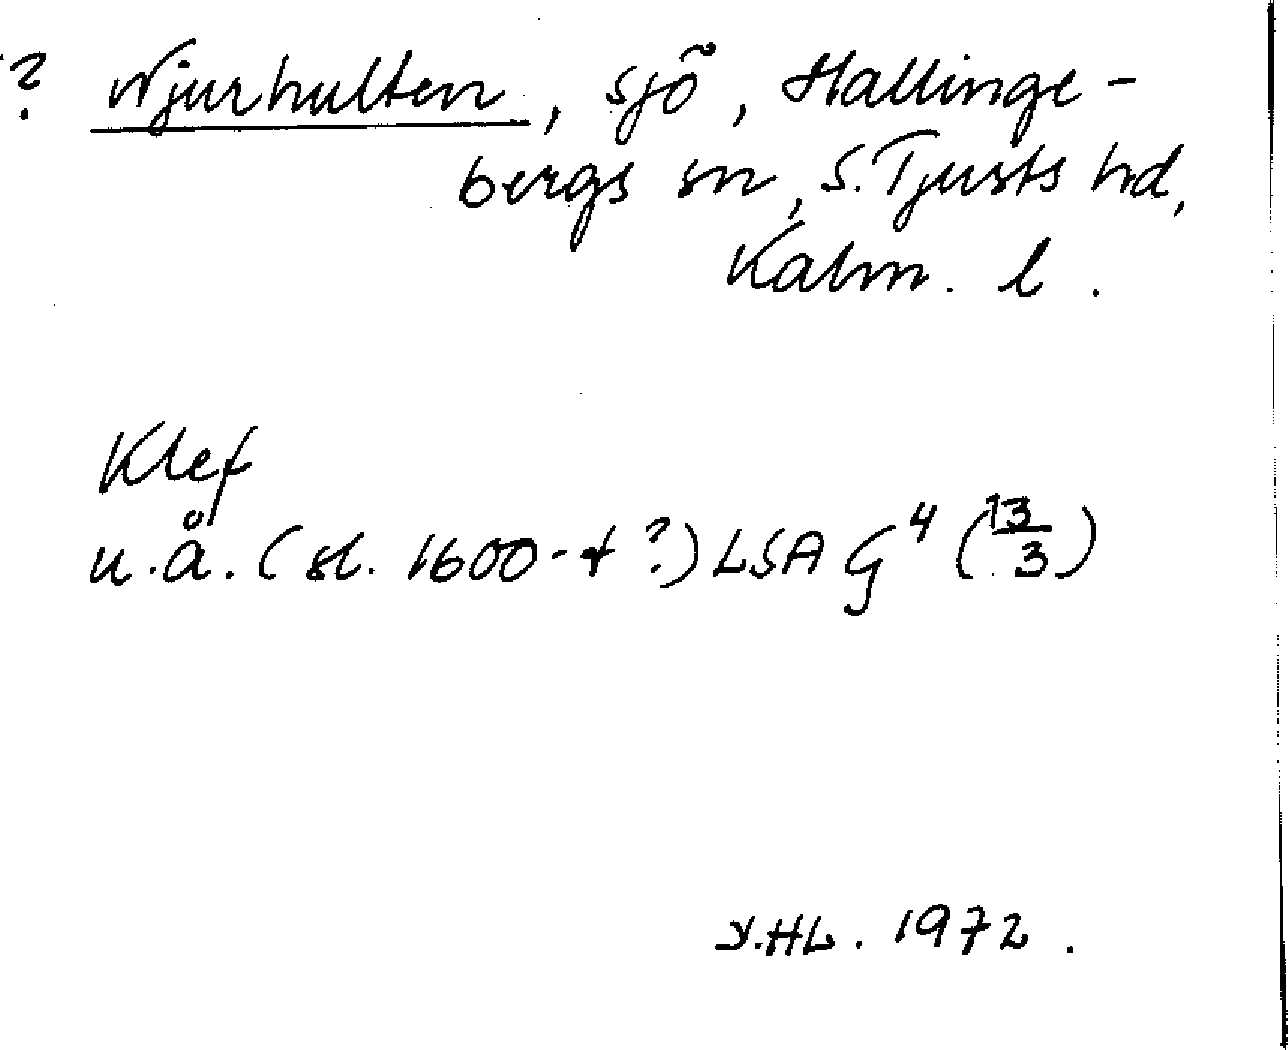 ? Njurhulten, sjö, Hallinge-
bergs sn, S. Tjusts hd,
Kalm. l.
Klef
u.å. (sl. 1600-t ?) LSA G⁴ (13/3)
Y.HL. 1972.